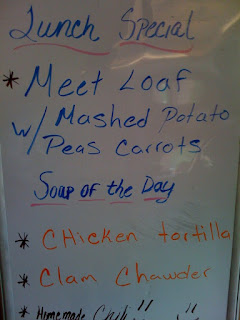 Lunch Special
* Meet Loaf
w/ Mashed Potato
Peas Carrots
Soap of the Day
* CHicken tortilla
* Clam Chawder
* Homemade Chili